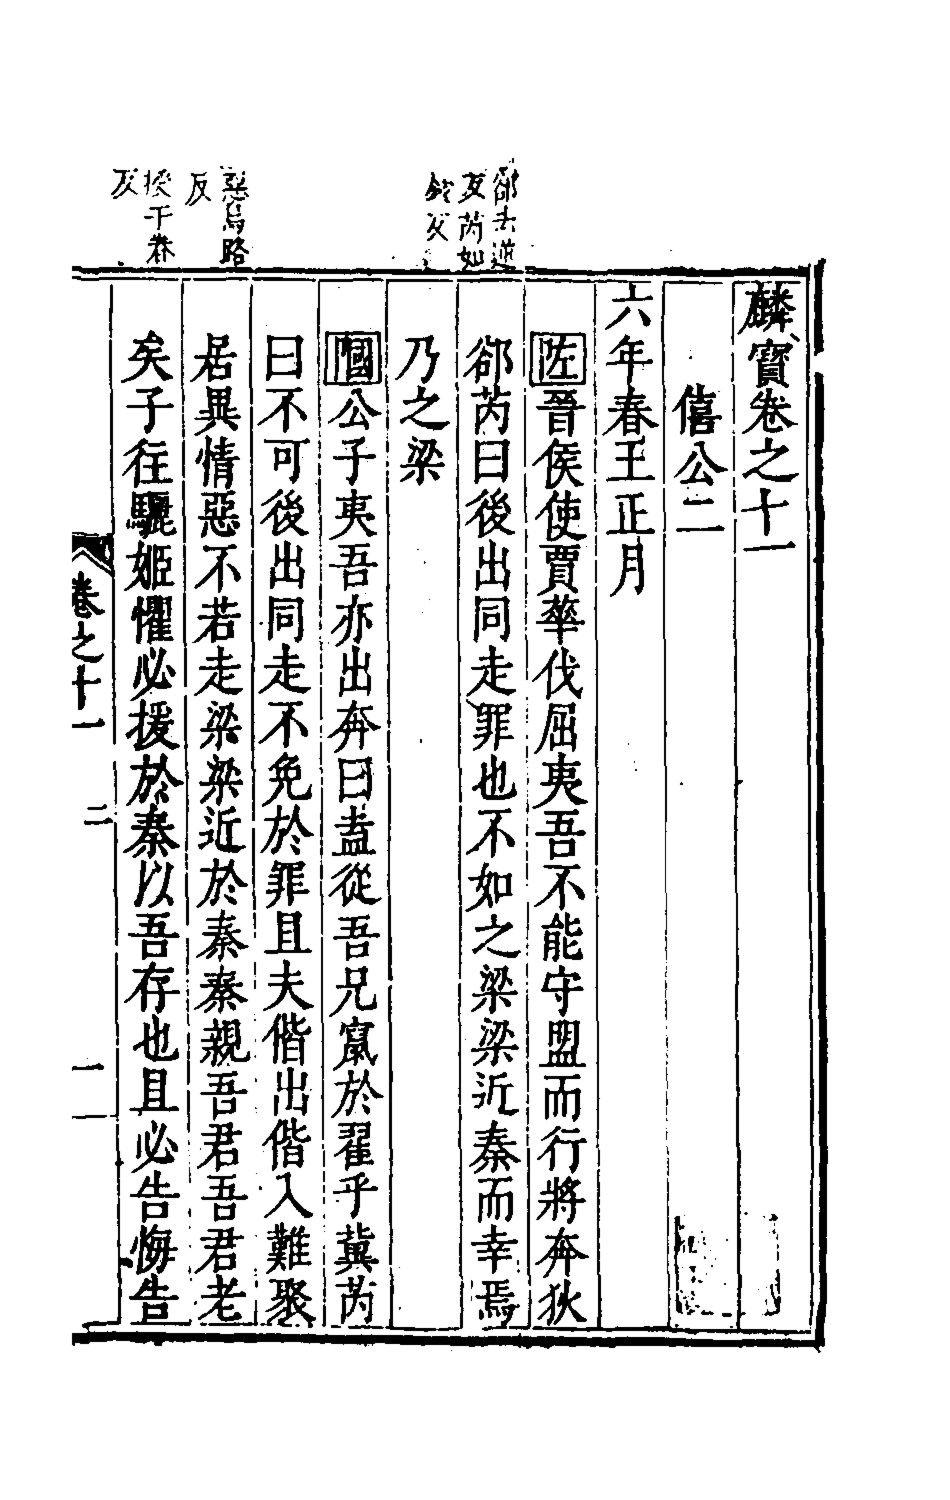 麟寶卷之十一
僖公二
六年春王正月
左晉侯使賈華伐屈夷吾不能守盟而行將奔狄
郤芮曰後出同走罪也不如之梁梁近秦而幸焉
乃之梁
國公子夷吾亦出奔曰盍從吾兄竄於翟乎冀芮
曰不可後出同走不免於罪且夫偕出偕入難聚
居異情惡不若走梁梁近於秦秦親吾君吾君老
矣子往驪姬懼必援於秦以吾存也且必告悔告
郤去逆
反芮如
銳反
惡烏路
反
援于眷
反
卷之十一
二
一